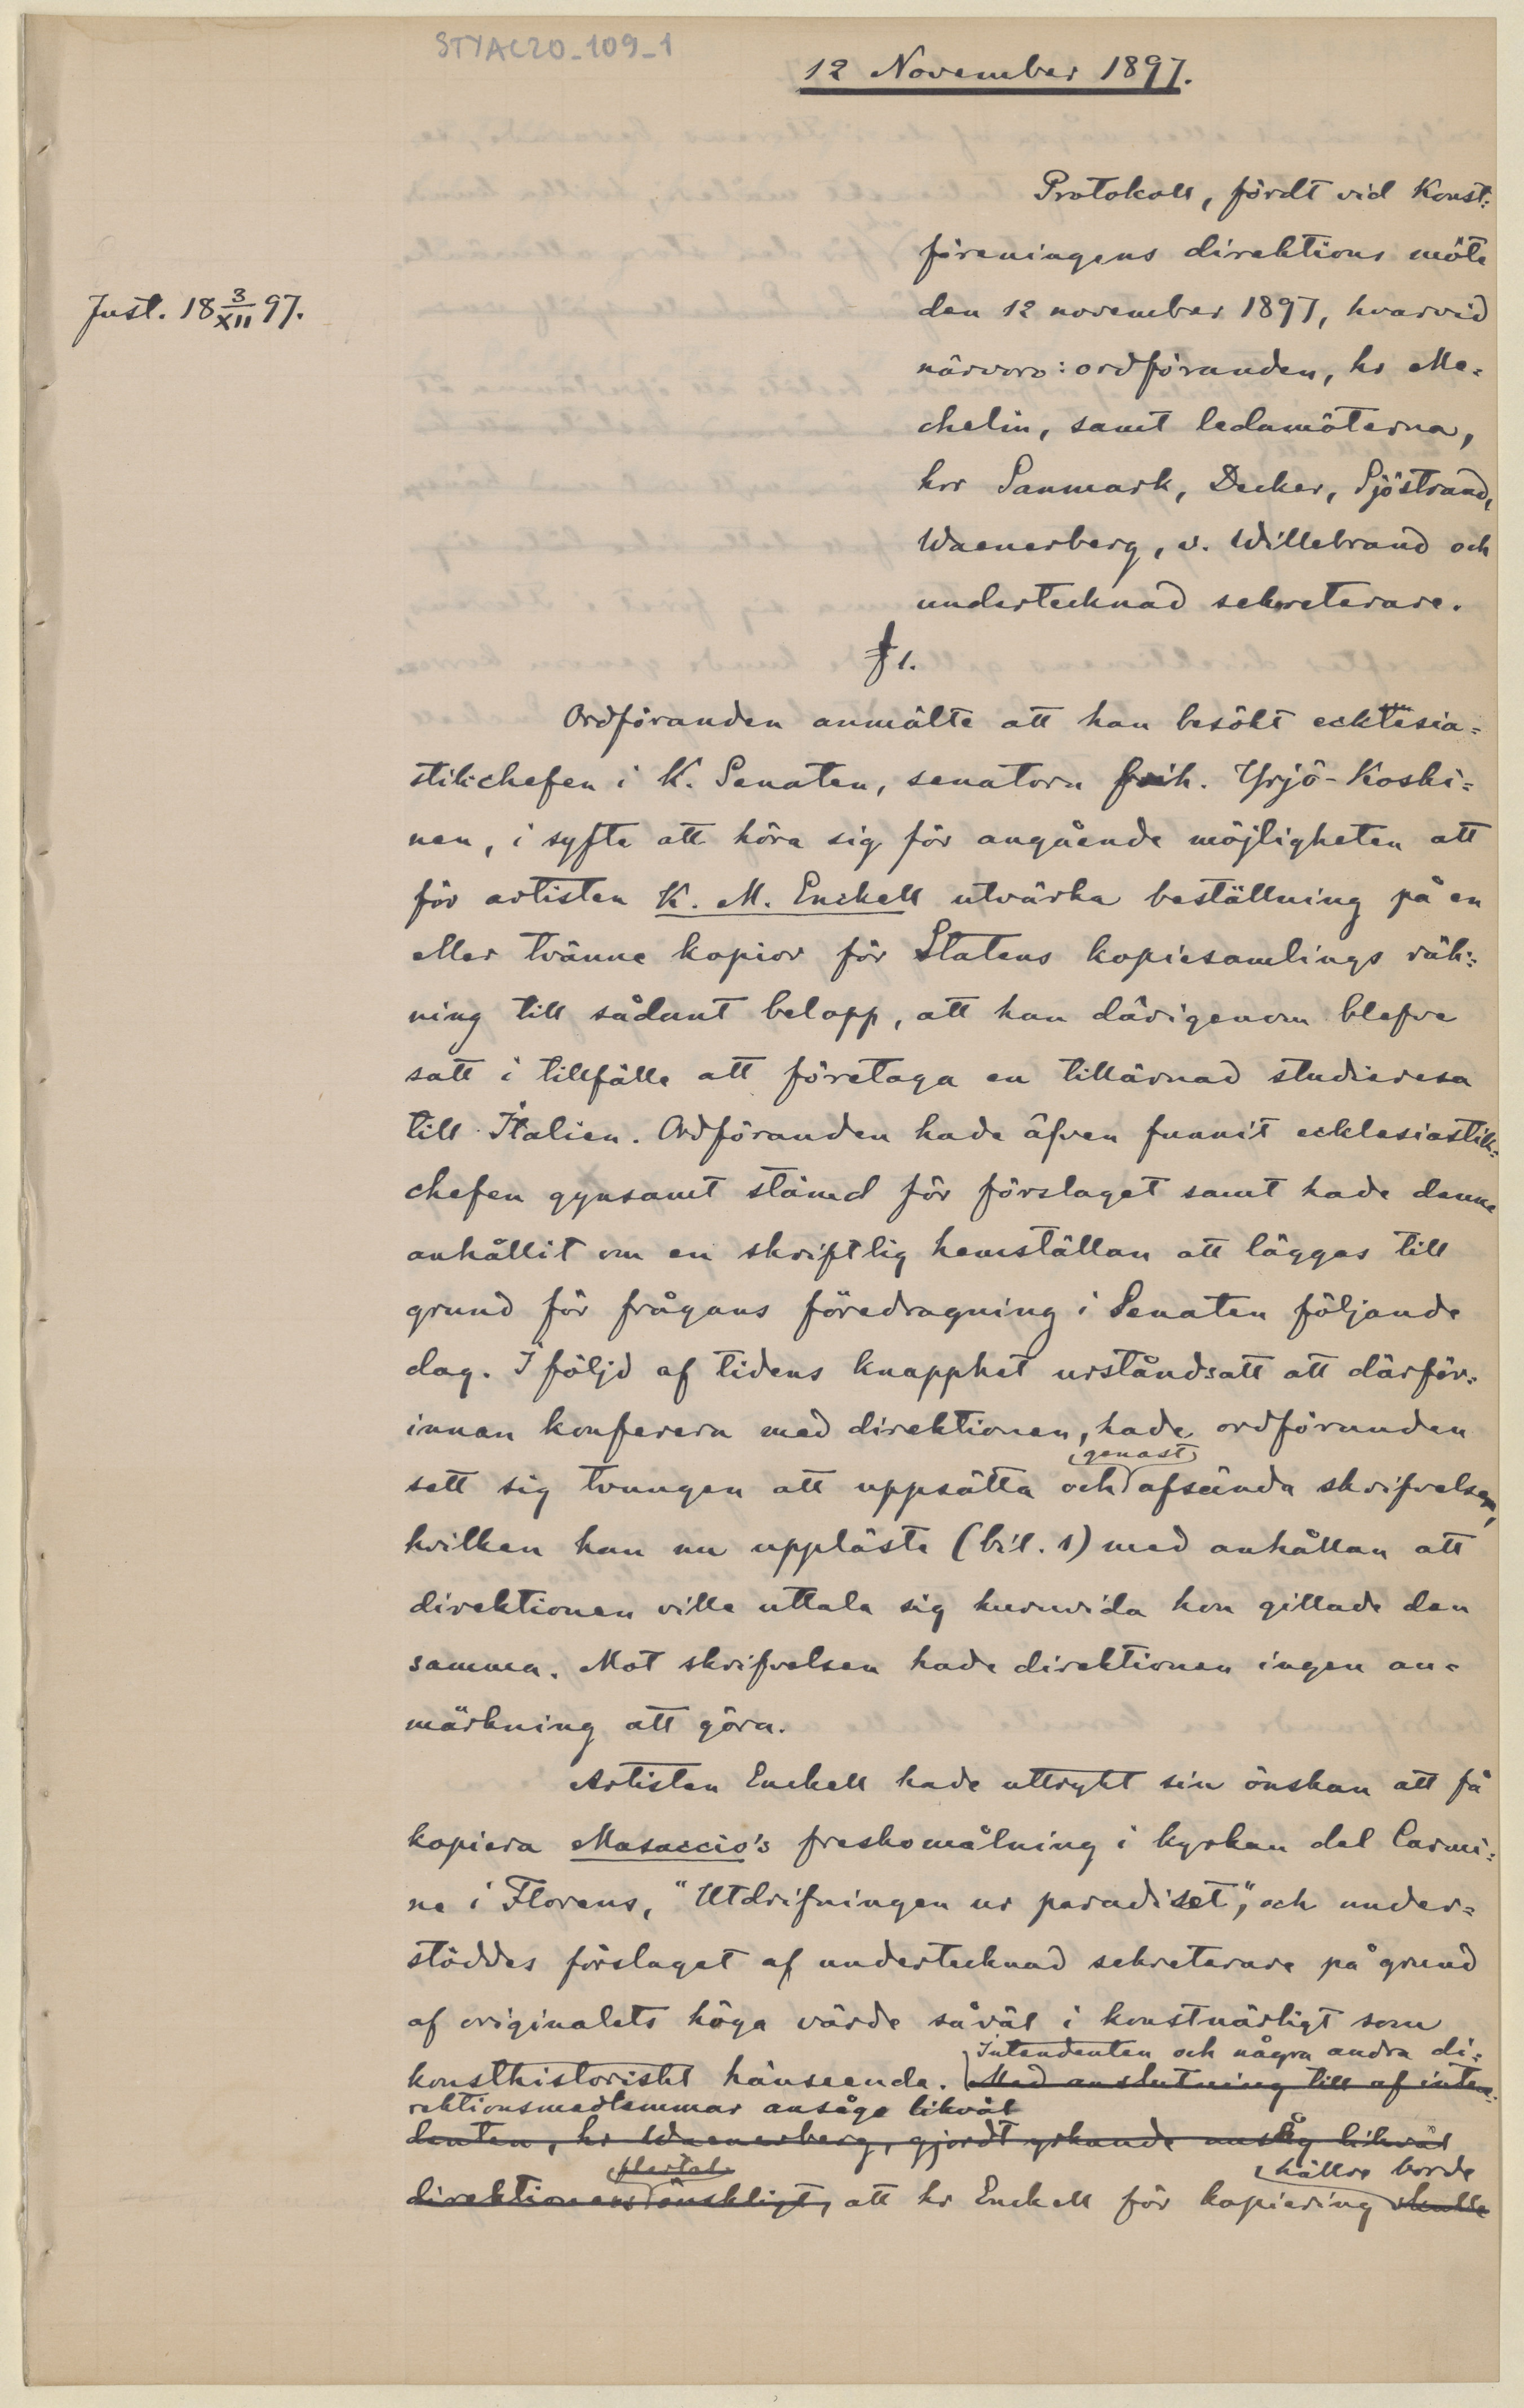 STYAL20_109_1
12 November 1897.
Protokoll, fördt vid Konst=
föreningens direktions möte
den 12 november 1897, hvarvid
närvoro: ordföranden, hr Me=
chelin, samt ledamöterna,
hrr Sanmark, Decker, Sjöstrand,
Waenerberg, v. Willebrand och
undertecknad sekreterare.
Just. 18 3/XII 97.
§ 1.
Ordföranden anmälte att han besökt ecklesia=
stikchefen i K. Senaten, senatorn frih. Yrjö-Koski=
nen, i syfte att höra sig för angående möjligheten att
för artisten K. M. Enckell utvärka beställning på en
eller tvänne kopior för Statens kopiesamlings räk=
ning till sådant belopp, att han därigenom blefve
satt i tillfälle att företaga en tillärnad studieresa
till Italien. Ordföranden hade äfven funnit ecklesiastik=
chefen gynsamt stämd för förslaget samt hade denne
anhållit om en skriftlig hemställan att läggas till
grund för frågans föredragning i Senaten följande
dag. I följd af tidens knapphet urståndsatt att därför=
innan konferera med direktionen, hade ordföranden
genast
sett sig tvungen att uppsätta och afsända skrifvelsen,
hvilken han nu uppläste (bil. 1) med anhållan att
direktionen ville uttala sig huruvida hon gillade den
samma. Mot skrifvelsen hade direktionen ingen an=
märkning att göra.
Artisten Enckell hade uttrykt sin önskan att få
kopiera Masaccio's freskomålning i kyrkan del Carmi=
ne i Florens, "Utdrifningen ur paradiset", och under=
stöddes förslaget af undertecknad sekreterare på grund
af originalets höga värde såväl i konstnärligt som
Intendenten och några andra di=
konsthistoriskt hänseende. Med anslutning till af inten=
rektionsmedlemmar ansåge likväl
denten, hr Waenerberg, gjordt yrkande ansåg likväl
flertal
hällre borde
direktionens önskligt, att hr Enckell för kopiering skulle